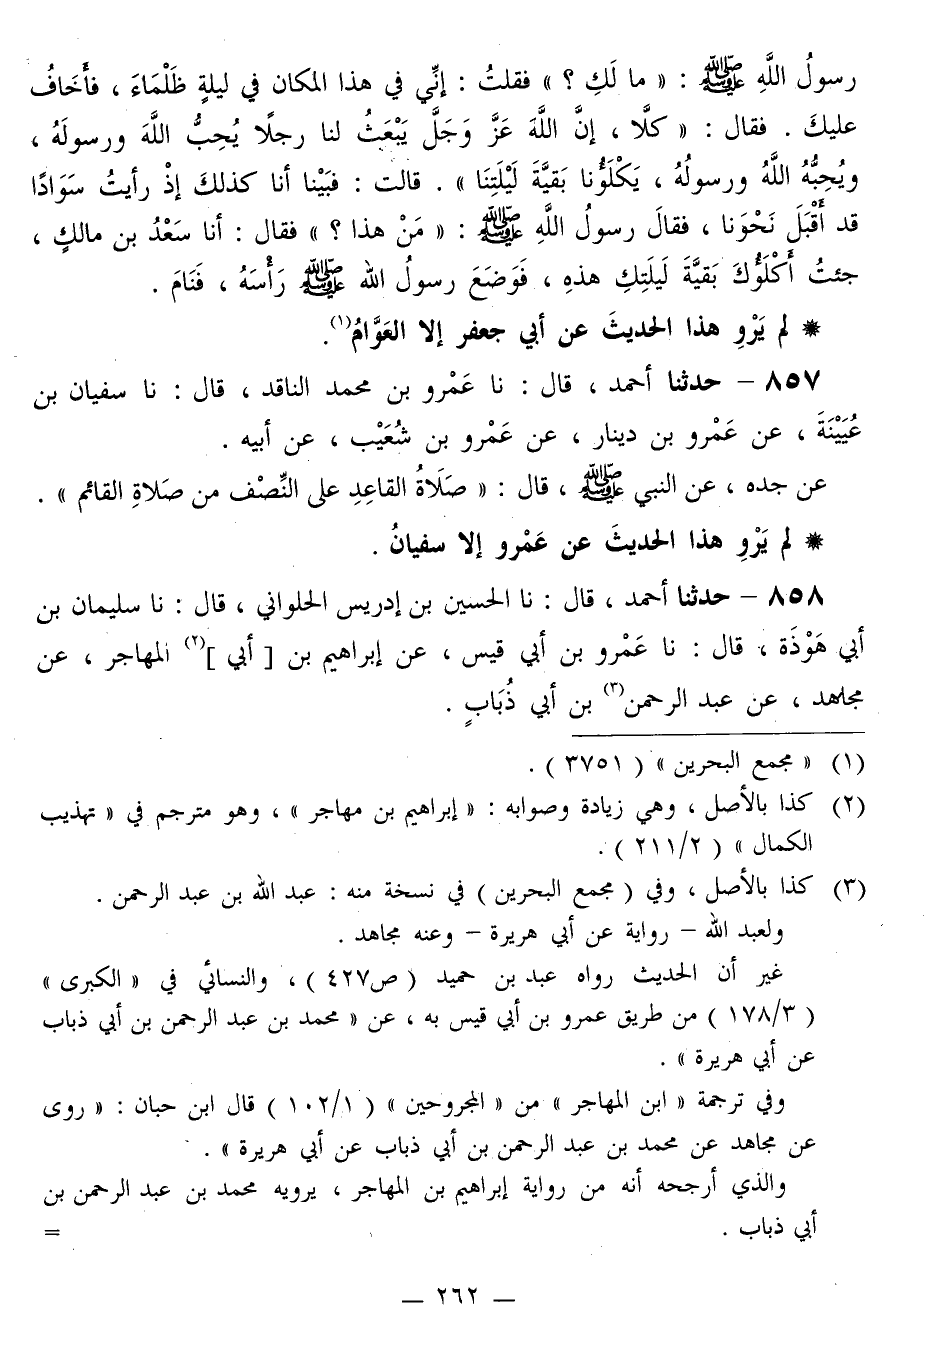 رسولُ اللَّهِ ﷺ : « ما لَكِ ؟ » فقلتُ : إنِّي في هذا المكان في ليلةٍ ظَلْمَاءَ ، فأَخَافُ
عليكَ . فقال : « كلَّا ، إنَّ اللَّهَ عَزَّ وَجَلَّ يَبْعَثُ لنا رجلًا يُحِبُّ اللَّهَ ورسولَهُ ،
ويُحِبُّهُ اللَّهُ ورسولُهُ ، يَكْلَؤُنا بَقيَّةَ لَيْلَتِنَا » . قالت : فبَيْنا أنا كذلكَ إذْ رأيتُ سَوَادًا
قد أَقْبَلَ نَحْوَنا ، فقالَ رسولُ اللَّهِ ﷺ : « مَنْ هذا ؟ » فقال : أنا سَعْدُ بن مالكٍ ،
جئتُ أَكْلَؤُكَ بَقيَّةَ لَيلَتِكِ هذهِ ، فَوَضَعَ رسولُ الله ﷺ رَأْسَهُ ، فَنَامَ .
* لم يَرْوِ هذا الحديثَ عن أبي جعفر إلا العَوَّامُ(١).
٨٥٧ – حدثنا أحمد ، قال : نا عَمْرو بن محمد الناقد ، قال : نا سفيان بن
عُيَيْنَةَ ، عن عَمْرو بن دينار ، عن عَمْرو بن شُعَيْب ، عن أبيه .
عن جده ، عن النبي ﷺ ، قال : « صَلَاةُ القاعِدِ على النِّصْف من صَلاةِ القائم » .
* لم يَرْوِ هذا الحديثَ عن عَمْرو إلا سفيانُ .
٨٥٨ – حدثنا أحمد ، قال : نا الحسين بن إدريس الحلواني ، قال : نا سليمان بن
أبي هَوْذَة ، قال : نا عَمْرو بن أبي قيس ، عن إبراهيم بن [ أبي ](٢) المهاجر ، عن
مجاهد ، عن عبد الرحمن(٣) بن أبي ذُبَابٍ .
(١) « مجمع البحرين » ( ٣٧٥١ ) .
(٢) كذا بالأصل ، وهي زيادة وصوابه : « إبراهيم بن مهاجر » ، وهو مترجم في « تهذيب
الكمال » ( ٢١١/٢ ) .
(٣) كذا بالأصل ، وفي ( مجمع البحرين ) في نسخة منه : عبد الله بن عبد الرحمن .
ولعبد الله – رواية عن أبي هريرة – وعنه مجاهد .
غير أن الحديث رواه عبد بن حميد ( ص٤٢٧ ) ، والنسائي في « الكبرى »
( ١٧٨/٣ ) من طريق عمرو بن أبي قيس به ، عن « محمد بن عبد الرحمن بن أبي ذباب
عن أبي هريرة » .
وفي ترجمة « ابن المهاجر » من « المجروحين » ( ١٠٢/١ ) قال ابن حبان : « روى
عن مجاهد عن محمد بن عبد الرحمن بن أبي ذباب عن أبي هريرة » .
والذي أرجحه أنه من رواية إبراهيم بن المهاجر ، يرويه محمد بن عبد الرحمن بن
أبي ذباب . =
— ٢٦٢ —